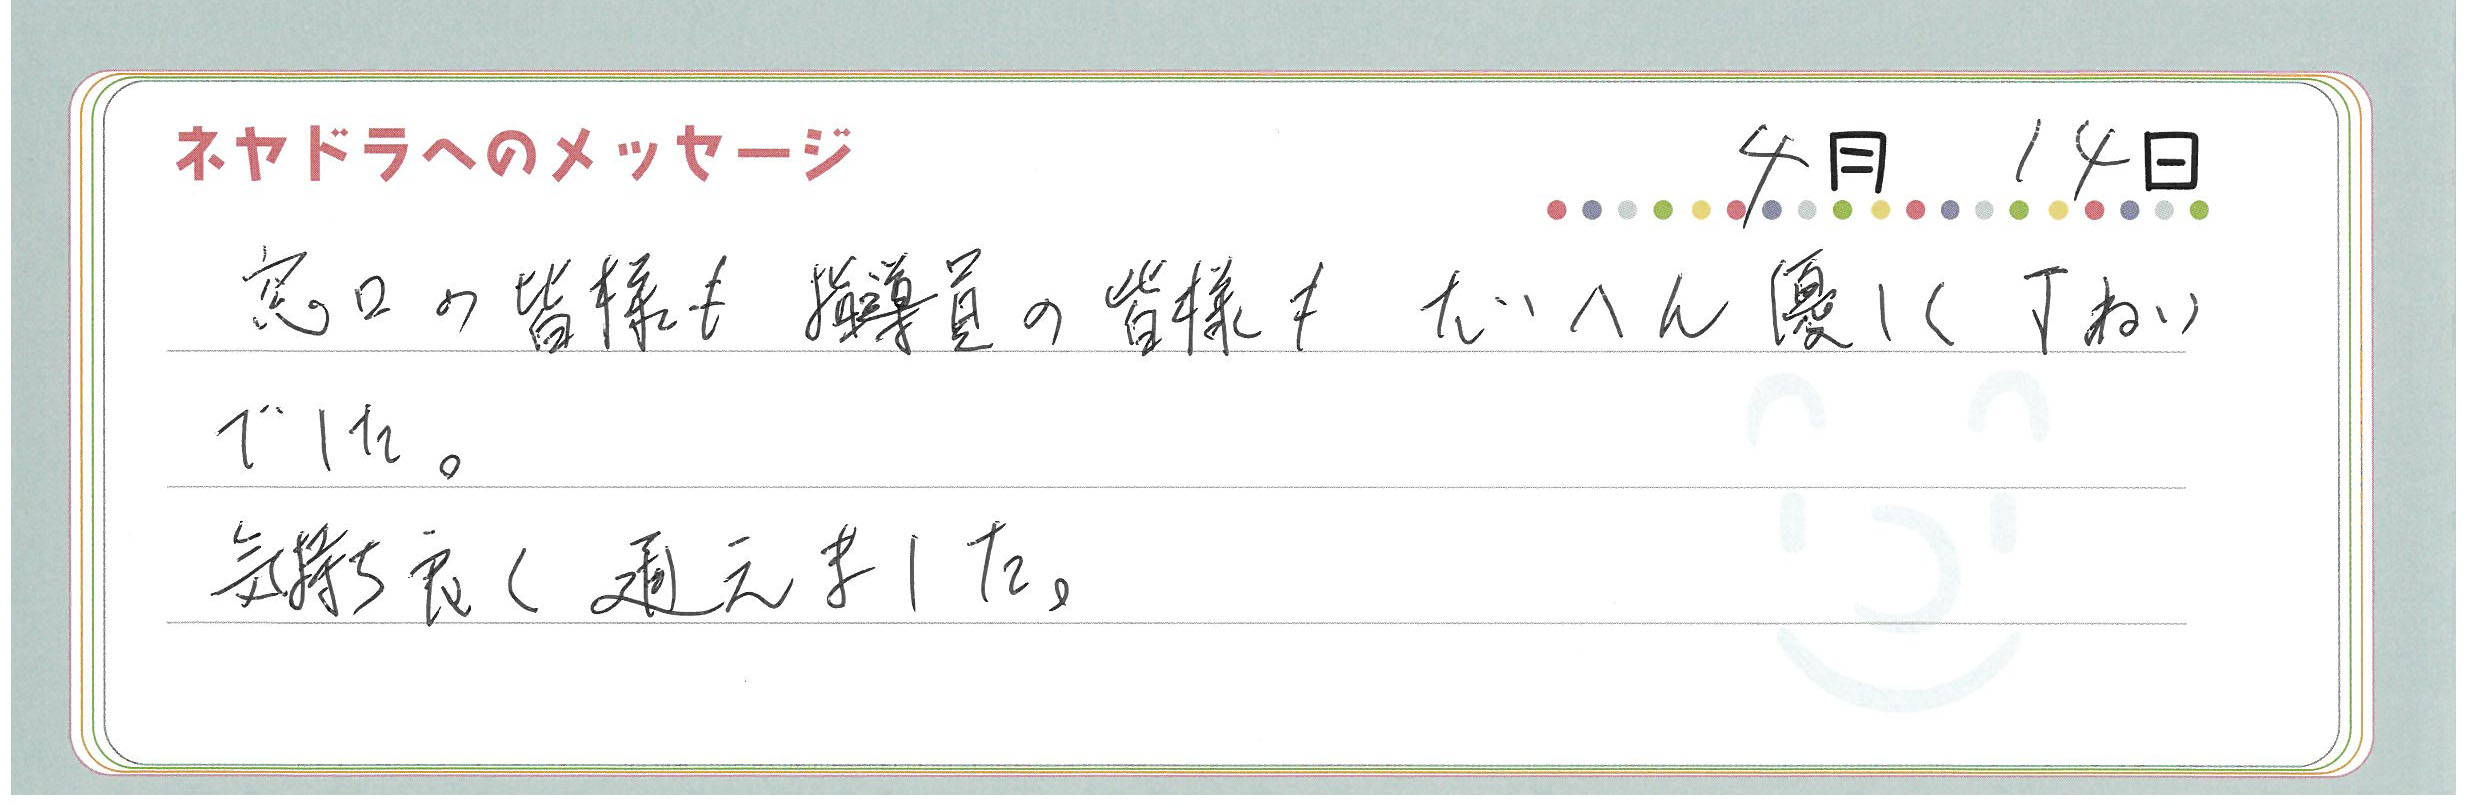 ネヤドラへのメッセージ
4月 14日
窓口の皆様も 指導員の皆様も たいへん優しく丁ねい
でした。
気持ち良く通えました。